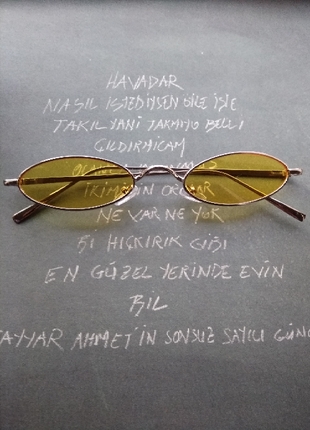 HAVADAR
NASIL İSTEDİYSEN ÖYLE İŞLE
TAKIL YANİ TAKMIYO BELLİ
ÇILDIRMICAM
İKİMİZİN
NE VAR NE YOK
Bİ HIÇKIRIK GİBİ
EN GÜZEL YERİNDE EVİN
BİL
TAYYAR AHMET'İN SONSUZ SAYILI GÜNÜ